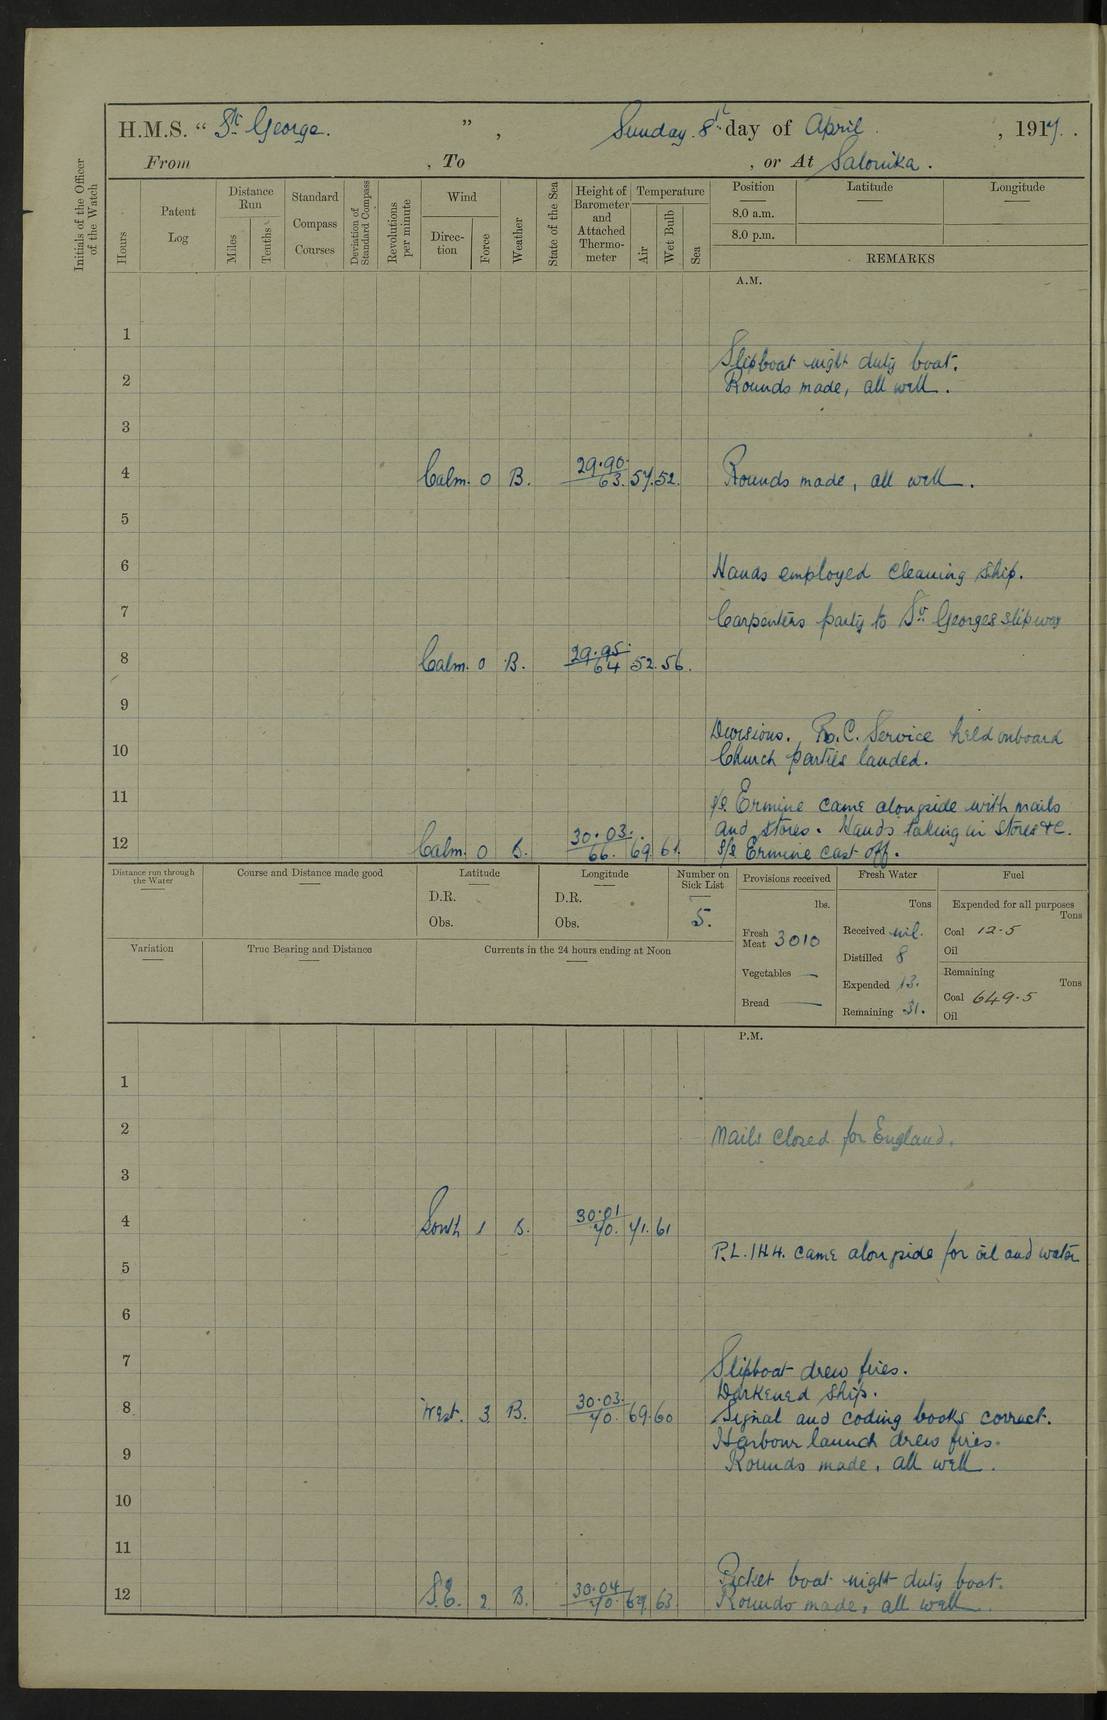 H.M.S. “ St George. ” , Sunday 8th day of April , 1917.
From , To , or At Salonika.
Initials of the Officer of the Watch
Hours
Patent Log
Distance Run
Miles
Tenths
Standard Compass Courses
Deviation of Standard Compass
Revolutions per minute
Wind
Direction
Force
Weather
State of the Sea
Height of Barometer and Attached Thermometer
Temperature
Air
Wet Bulb
Sea
Position Latitude Longitude
8.0 a.m.
8.0 p.m.
REMARKS
A.M.
1
Slipboat night duty boat.
2 Rounds made, all well.
3
4 Calm. 0 B. 29.90 63. 57. 52. Rounds made, all well.
5
6 Hands employed cleaning ship.
7 Carpenters party to St Georges slipway
8 Calm. 0 B. 29.95 64 52. 56.
9
Divisions. R.C. Service held onboard
10 Church parties landed.
11 s/s Ermine came alongside with mails
and stores. Hands taking in stores &c.
12 Calm. 0 B. 30.03. 66. 69. 61. s/s Ermine cast off.
Distance run through the Water
Course and Distance made good
Latitude
D.R.
Obs.
Longitude
D.R.
Obs.
Number on Sick List
5.
Provisions received
lbs.
Fresh Meat 3010
Vegetables —
Bread —
Fresh Water
Tons
Received nil.
Distilled 8
Expended 13.
Remaining 31.
Fuel
Expended for all purposes
Tons
Coal 12.5
Oil
Remaining
Tons
Coal 649.5
Oil
Variation
True Bearing and Distance
Currents in the 24 hours ending at Noon
P.M.
1
2 Mails closed for England.
3
4 South 1 B. 30.01 70. 71. 61
P.L. 1H4. came alongside for oil and water
5
6
7 Slipboat drew fires.
Darkened ship.
8 West. 3 B. 30.03. 70. 69. 60 Signal and coding books correct.
Harbour launch drew fires.
9 Rounds made, all well.
10
11
Picket boat night duty boat.
12 S.E. 2 B. 30.04 70. 69. 63 Rounds made, all well.